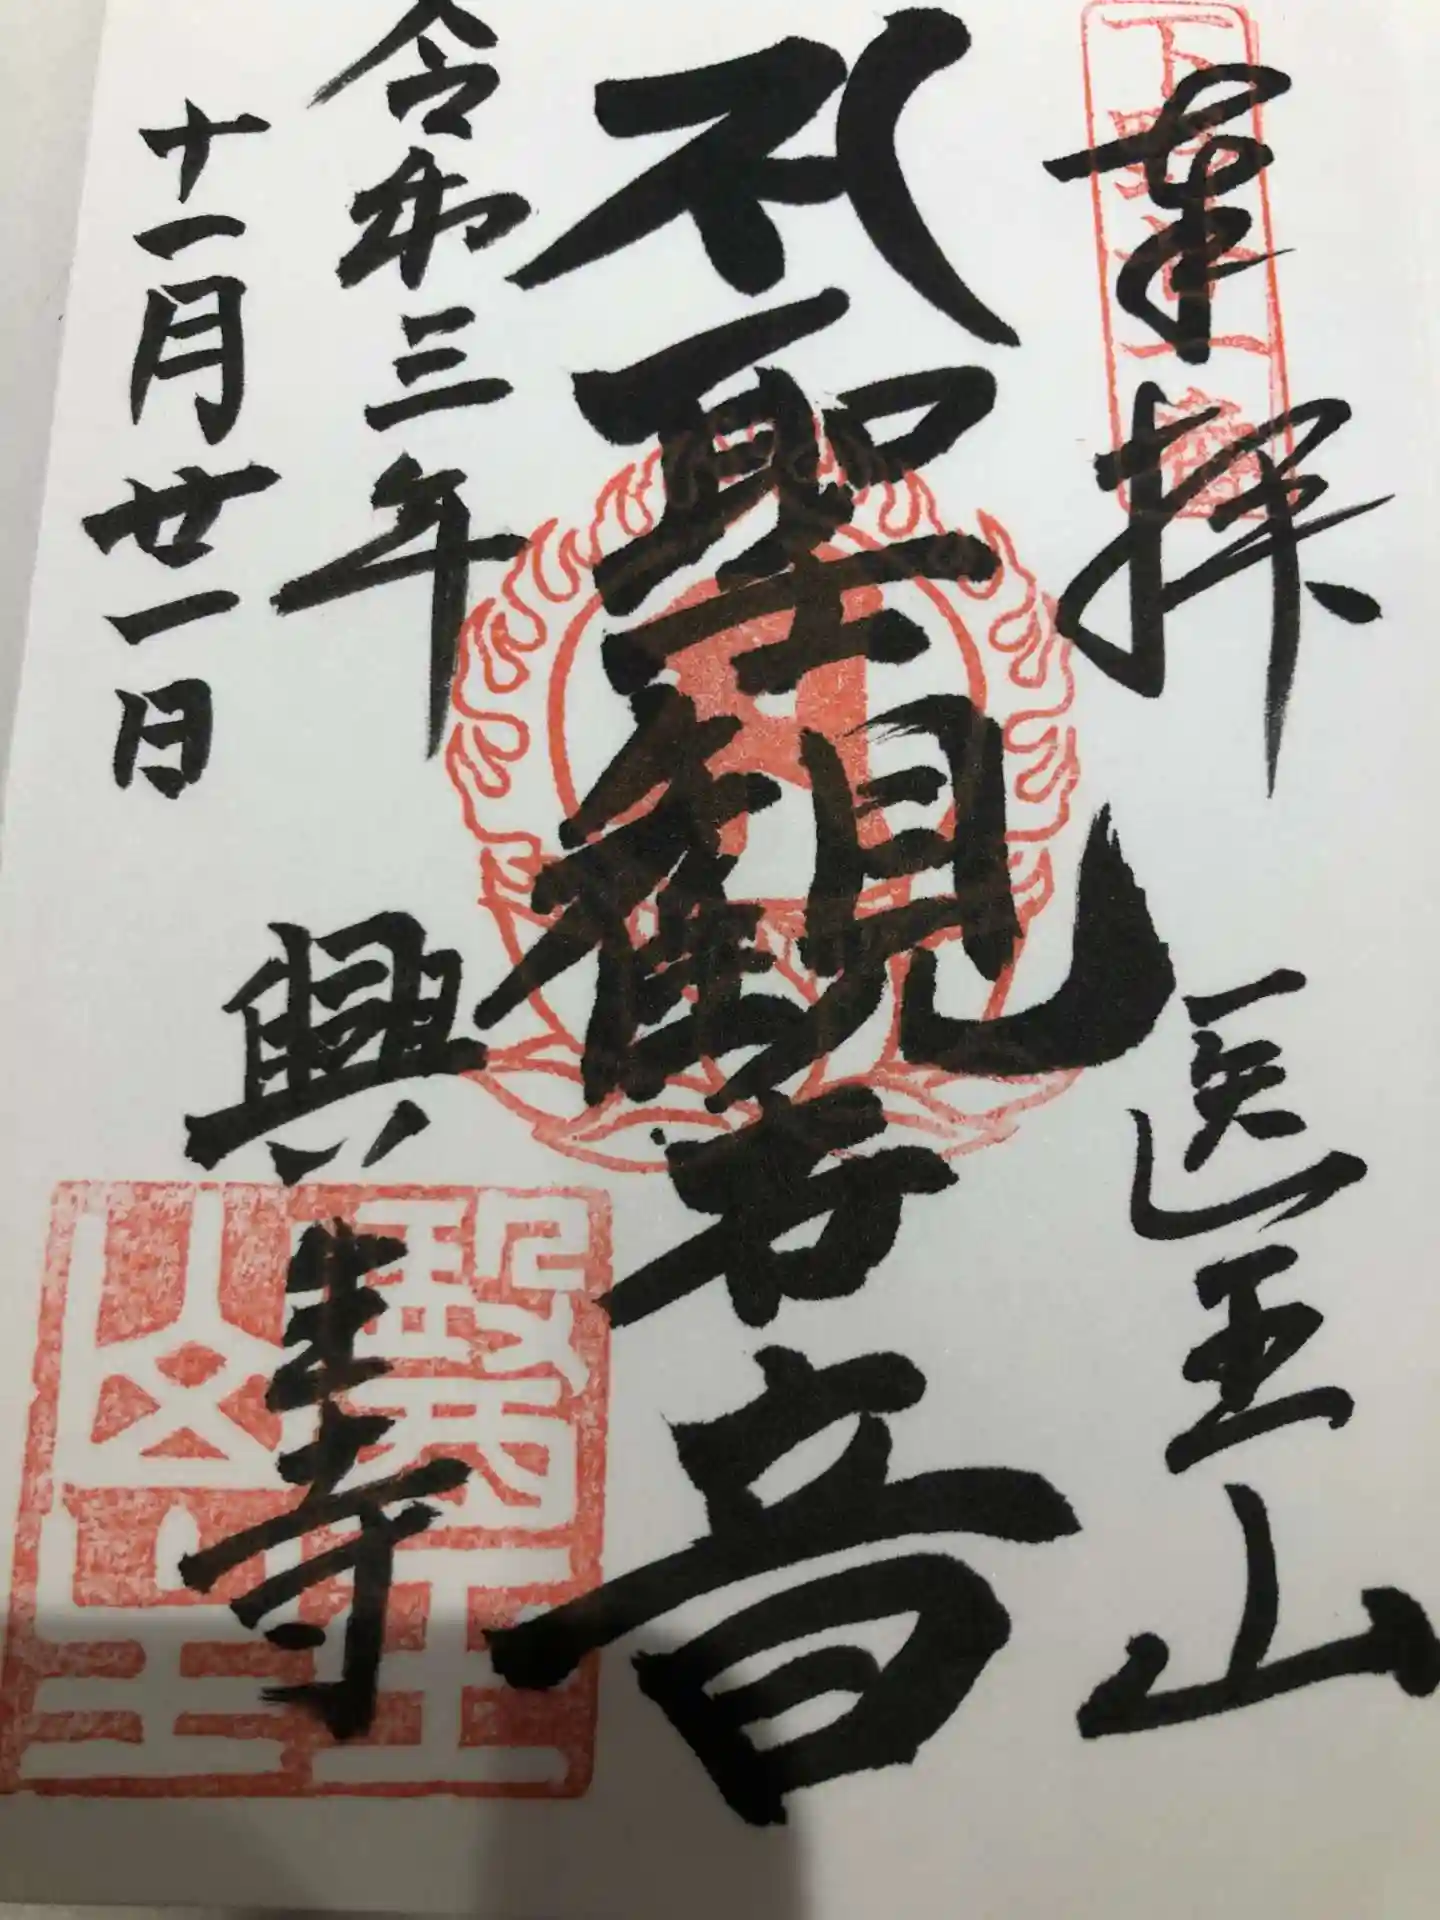 奉拝
医王山
聖観世音
令和三年
十一月廿一日
興生寺